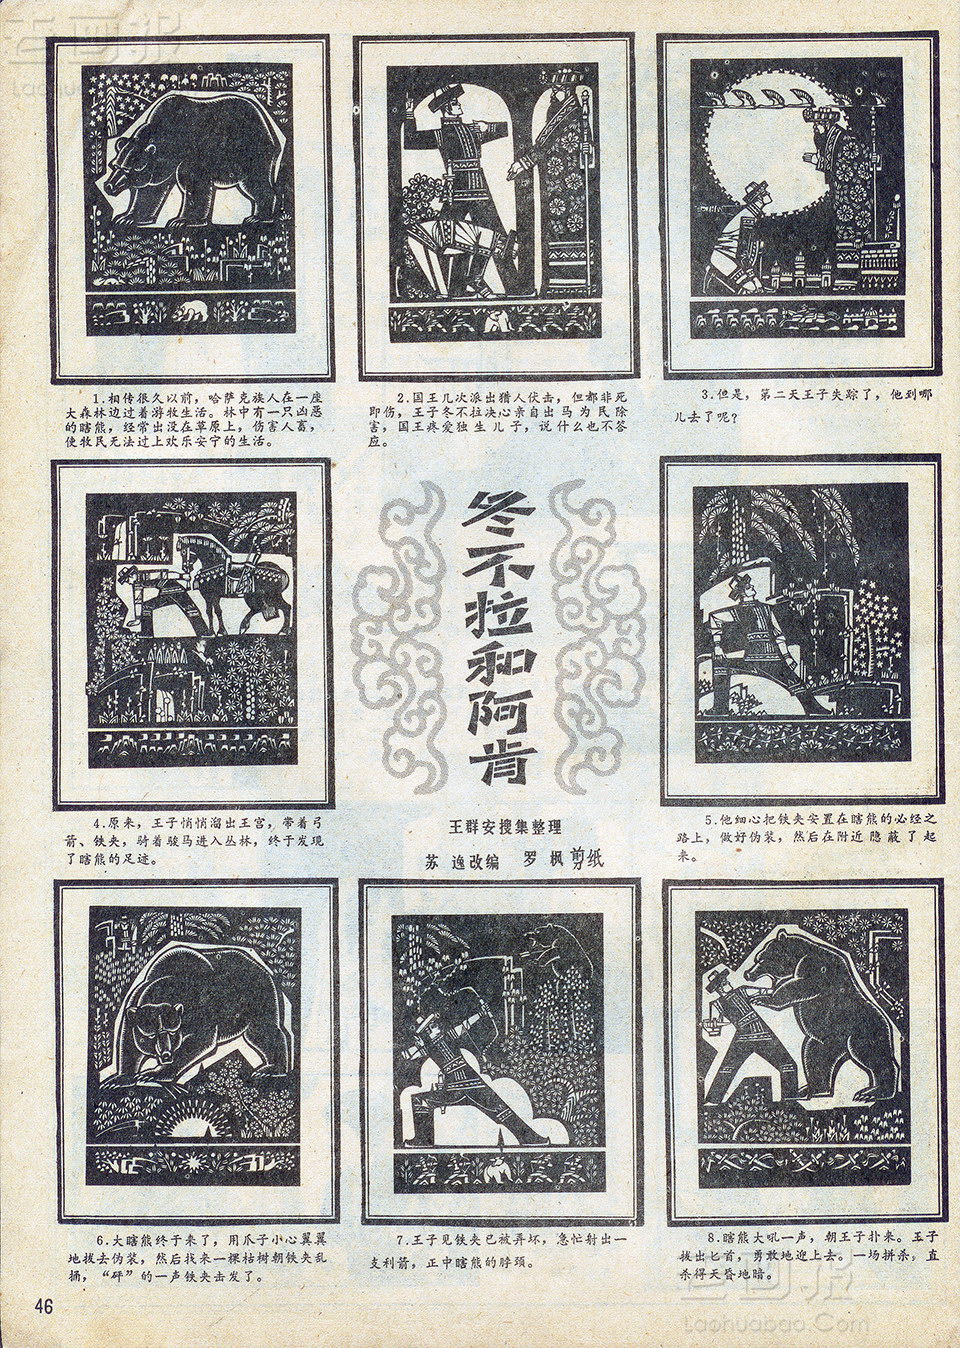 老画报
Laohuabao
1.相传很久以前，哈萨克族人在一座
大森林边过着游牧生活。林中有一只凶恶
的瞎熊，经常出没在草原上，伤害人畜，
使牧民无法过上欢乐安宁的生活。
2.国王几次派出猎人伏击，但都非死
即伤，王子冬不拉决心亲自出马为民除
害，国王疼爱独生儿子，说什么也不答
应。
3.但是，第二天王子失踪了，他到哪
儿去了呢？
冬不拉和阿肯
王群安搜集整理
苏 逸改编 罗 枫剪纸
4.原来，王子悄悄溜出王宫，带着弓
箭、铁夹，骑着骏马进入丛林，终于发现
了瞎熊的足迹。
5.他细心把铁夹安置在瞎熊的必经之
路上，做好伪装，然后在附近隐蔽了起
来。
6.大瞎熊终于来了，用爪子小心翼翼
地拔去伪装，然后找来一棵枯树朝铁夹乱
捅，“砰”的一声铁夹击发了。
7.王子见铁夹已被弄坏，急忙射出一
支利箭，正中瞎熊的脖颈。
8.瞎熊大吼一声，朝王子扑来。王子
拔出匕首，勇敢地迎上去。一场拼杀，直
杀得天昏地暗。
46
老画报
Laohuabao.Com